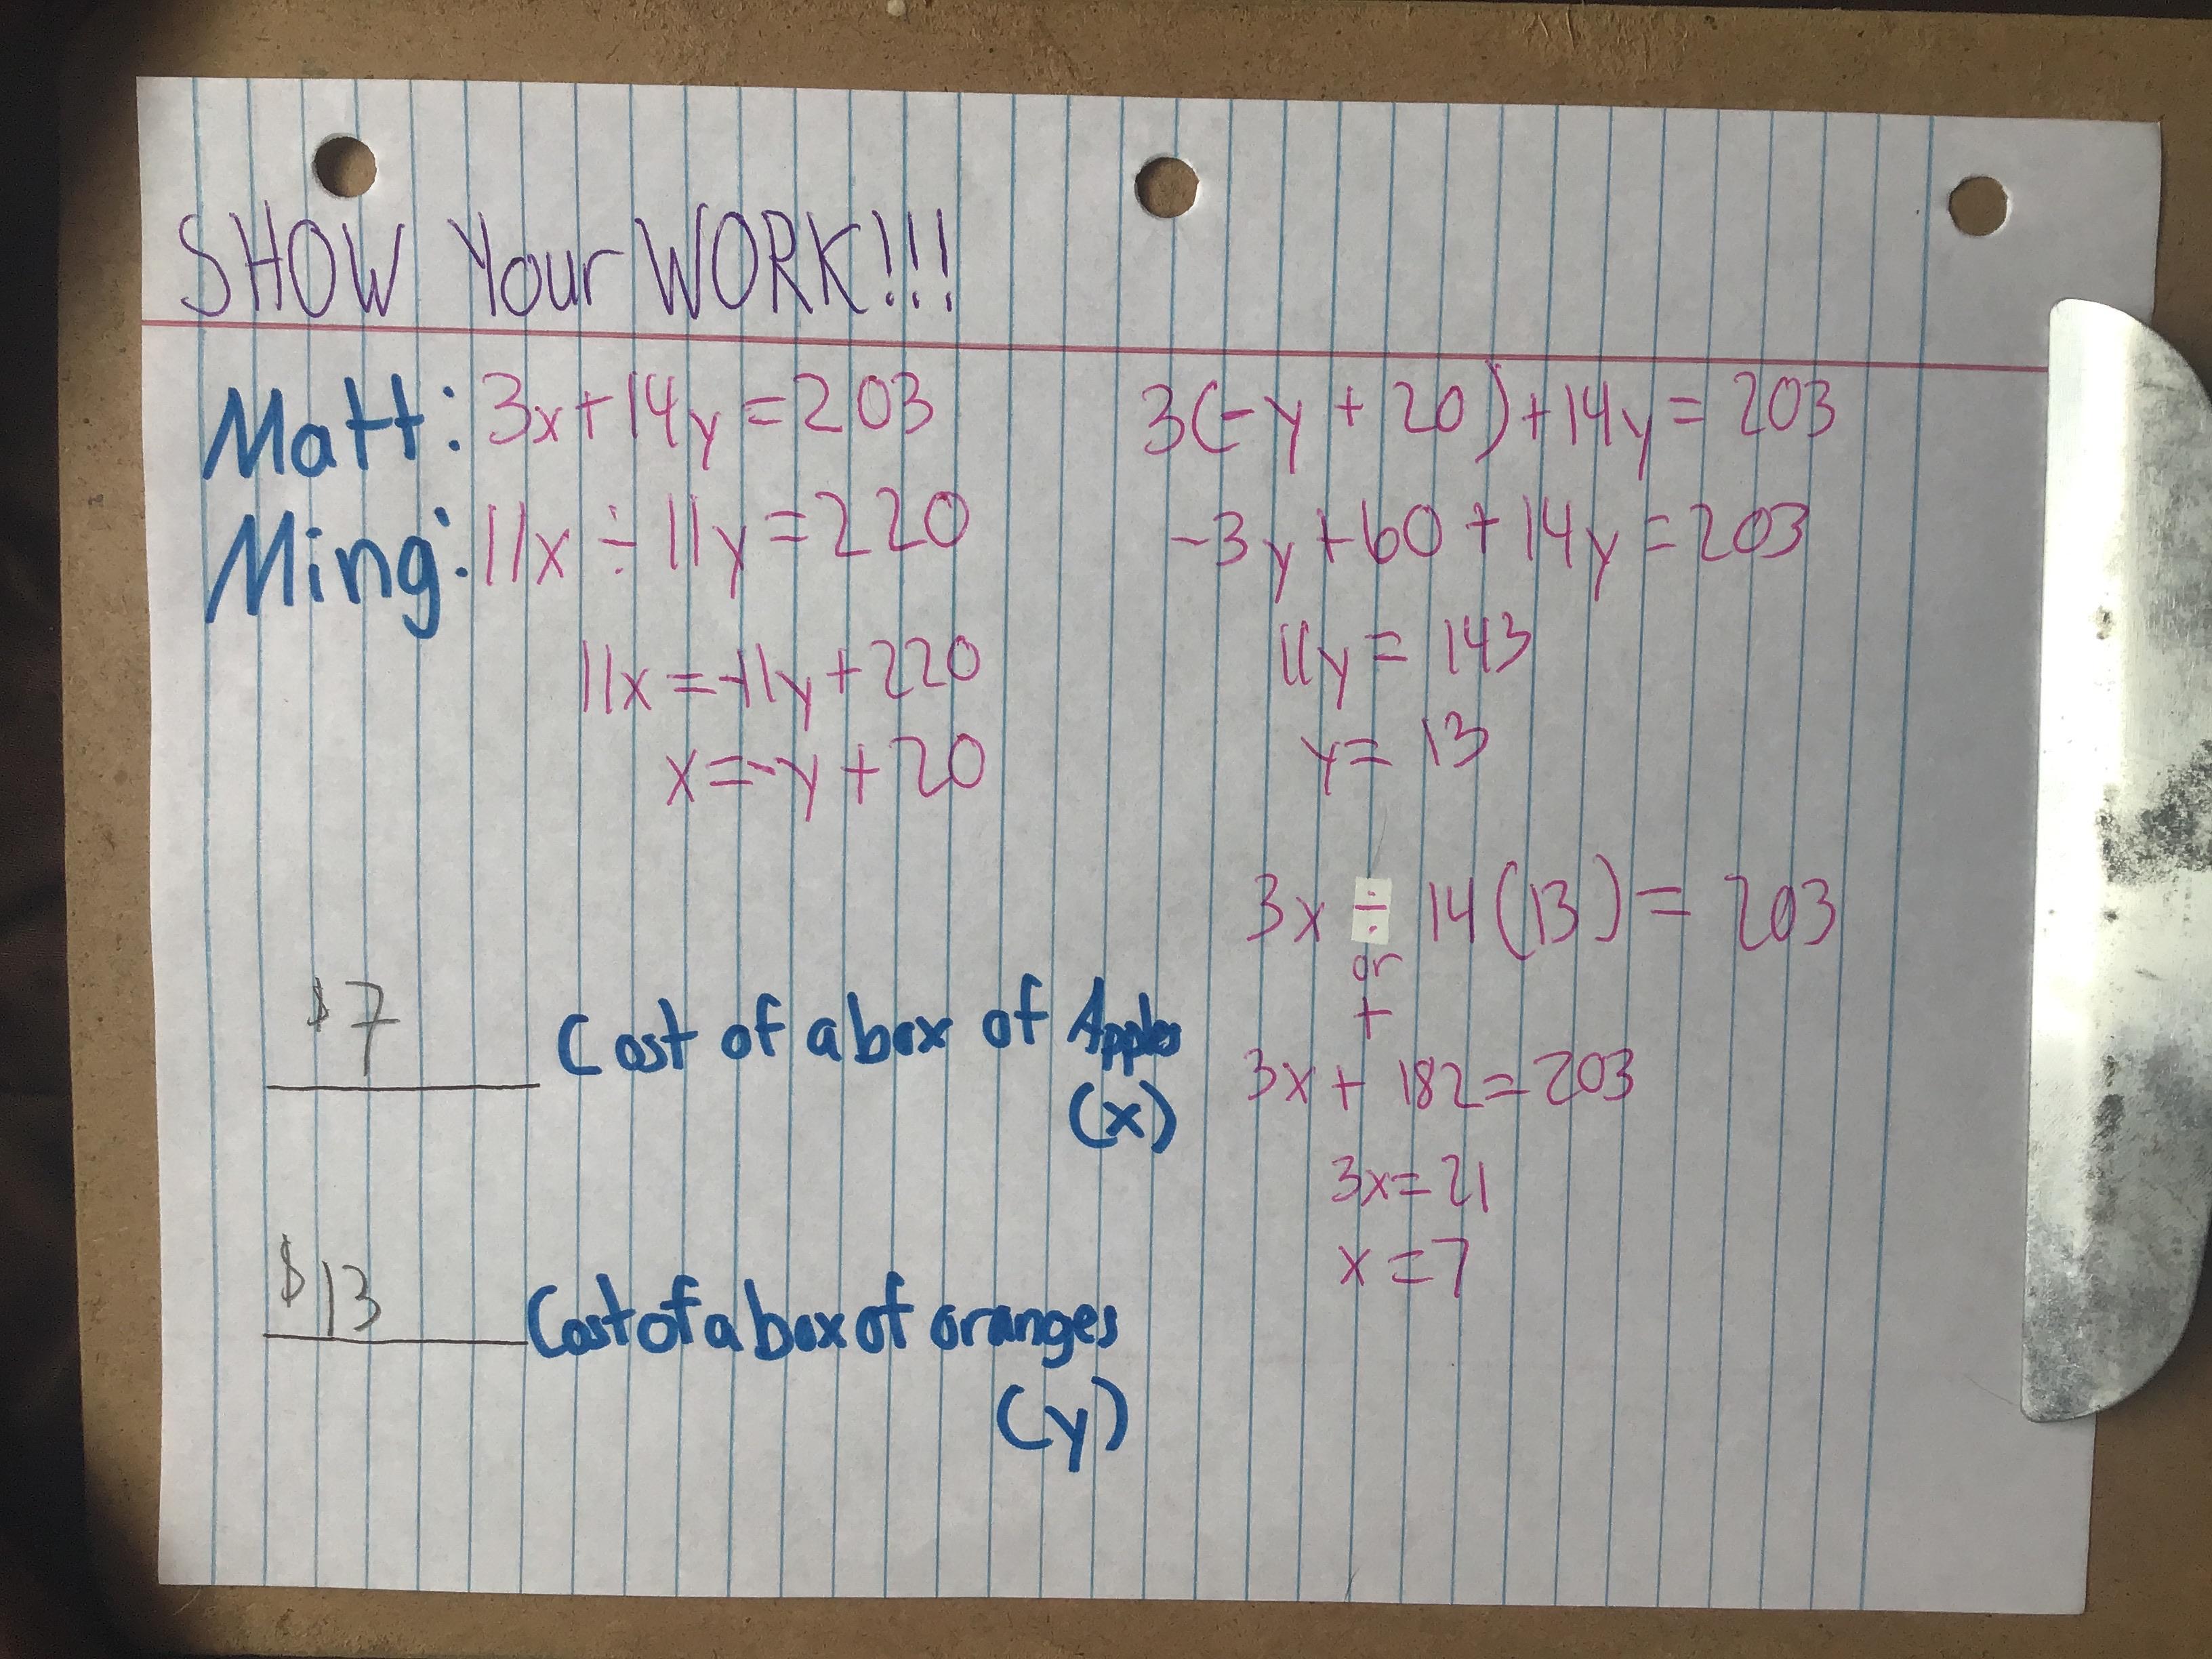 SHOW Your WORK!!!
Matt: 3x+14y=203
Ming: 11x ÷ 11y=220
11x=-11y+220
x=-y+20
3(-y+20)+14y=203
-3y+60+14y=203
11y=143
y=13
3x ÷ 14(13)=203
or
+
3x+182=203
3x=21
x=7
$7 Cost of a box of Apples
(x)
$13 Cost of a box of oranges
(y)